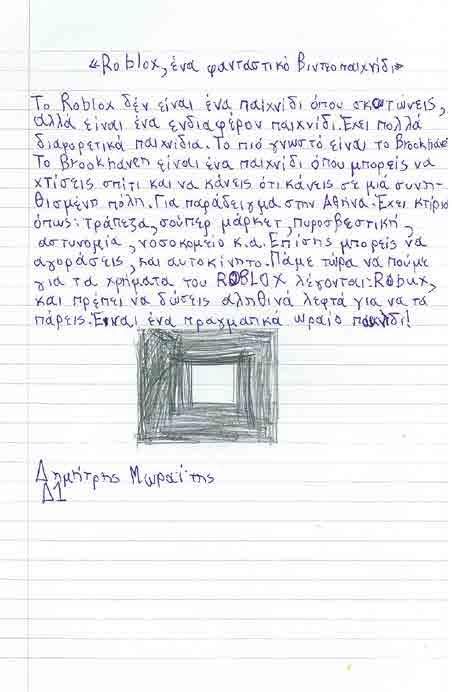 «Roblox, ένα φανταστικό βιντεοπαιχνίδι»
Το Roblox δέν είναι ένα παιχνίδι όπου σκοτώνεις,
αλλά είναι ένα ενδιαφέρον παιχνίδι. Έχει πολλά
διαφορετικά παιχνίδια. Το πιό γνωστό είναι το Brookhaven
Το Brookhaven είναι ένα παιχνίδι όπου μπορείς να
χτίσεις σπίτι και να κάνεις ότι κάνεις σε μιά συνηθ-
θισμένη πόλη. Για παράδειγμα στην Αθήνα. Έχει κτίρια
όπως: τράπεζα, σούπερ μάρκετ, πυροσβεστική,
αστυνομία, νοσοκομείο κ.α. Επίσης μπορείς να
αγοράσεις, και αυτοκίνητο. Πάμε τώρα να πούμε
για τα χρήματα του ROBLOX λέγονται: Robux,
και πρέπει να δώσεις αληθινά λεφτά για να τα
πάρεις. Είναι ένα πραγματικά ωραίο παιχνίδι!
Δημήτρης Μωραΐτης
Δ1